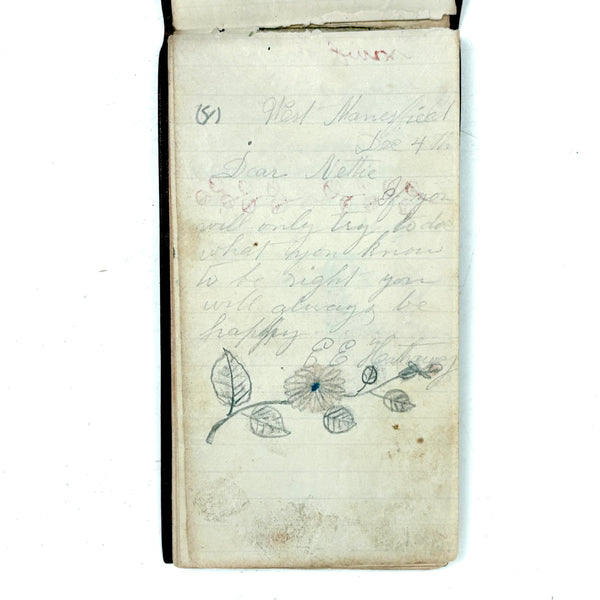 (8) West Mansfield
Dec 4th
Dear Nettie
If you
will only try to do
what you know
to be right you
will always be
happy
E E Hathaway